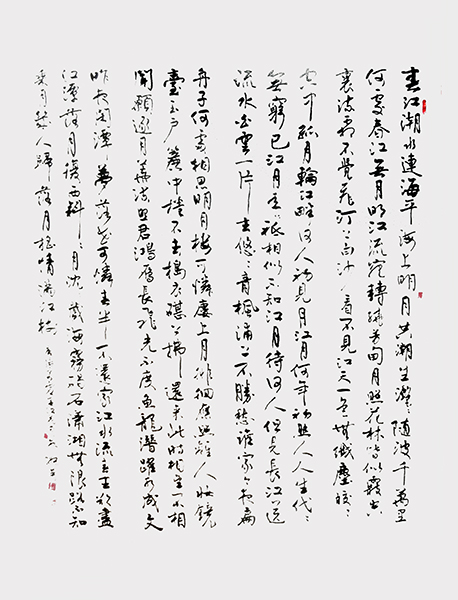 春江潮水連海平海上明月共潮生灩〻隨波千萬里
何處春江無月明江流宛轉繞芳甸月照花林皆似霰空
裏流霜不覺飛汀上白沙看不見江天一色無纖塵皎〻
空中孤月輪江畔何人初見月江月何年初照人人生代〻
無窮已江月年〻祗相似不知江月待何人但見長江送
流水白雲一片去悠〻青楓浦上不勝愁誰家今夜扁
舟子何處相思明月樓可憐樓上月徘徊應照離人妝鏡
臺玉戶簾中捲不去搗衣砧上拂還來此時相望不相
聞願逐月華流照君鴻雁長飛光不度魚龍潛躍水成文
昨夜閒潭夢落花可憐春半不還家江水流春去欲盡
江潭落月復西斜〻月沉〻藏海霧碣石瀟湘無限路不知
乘月幾人歸落月搖情滿江樹